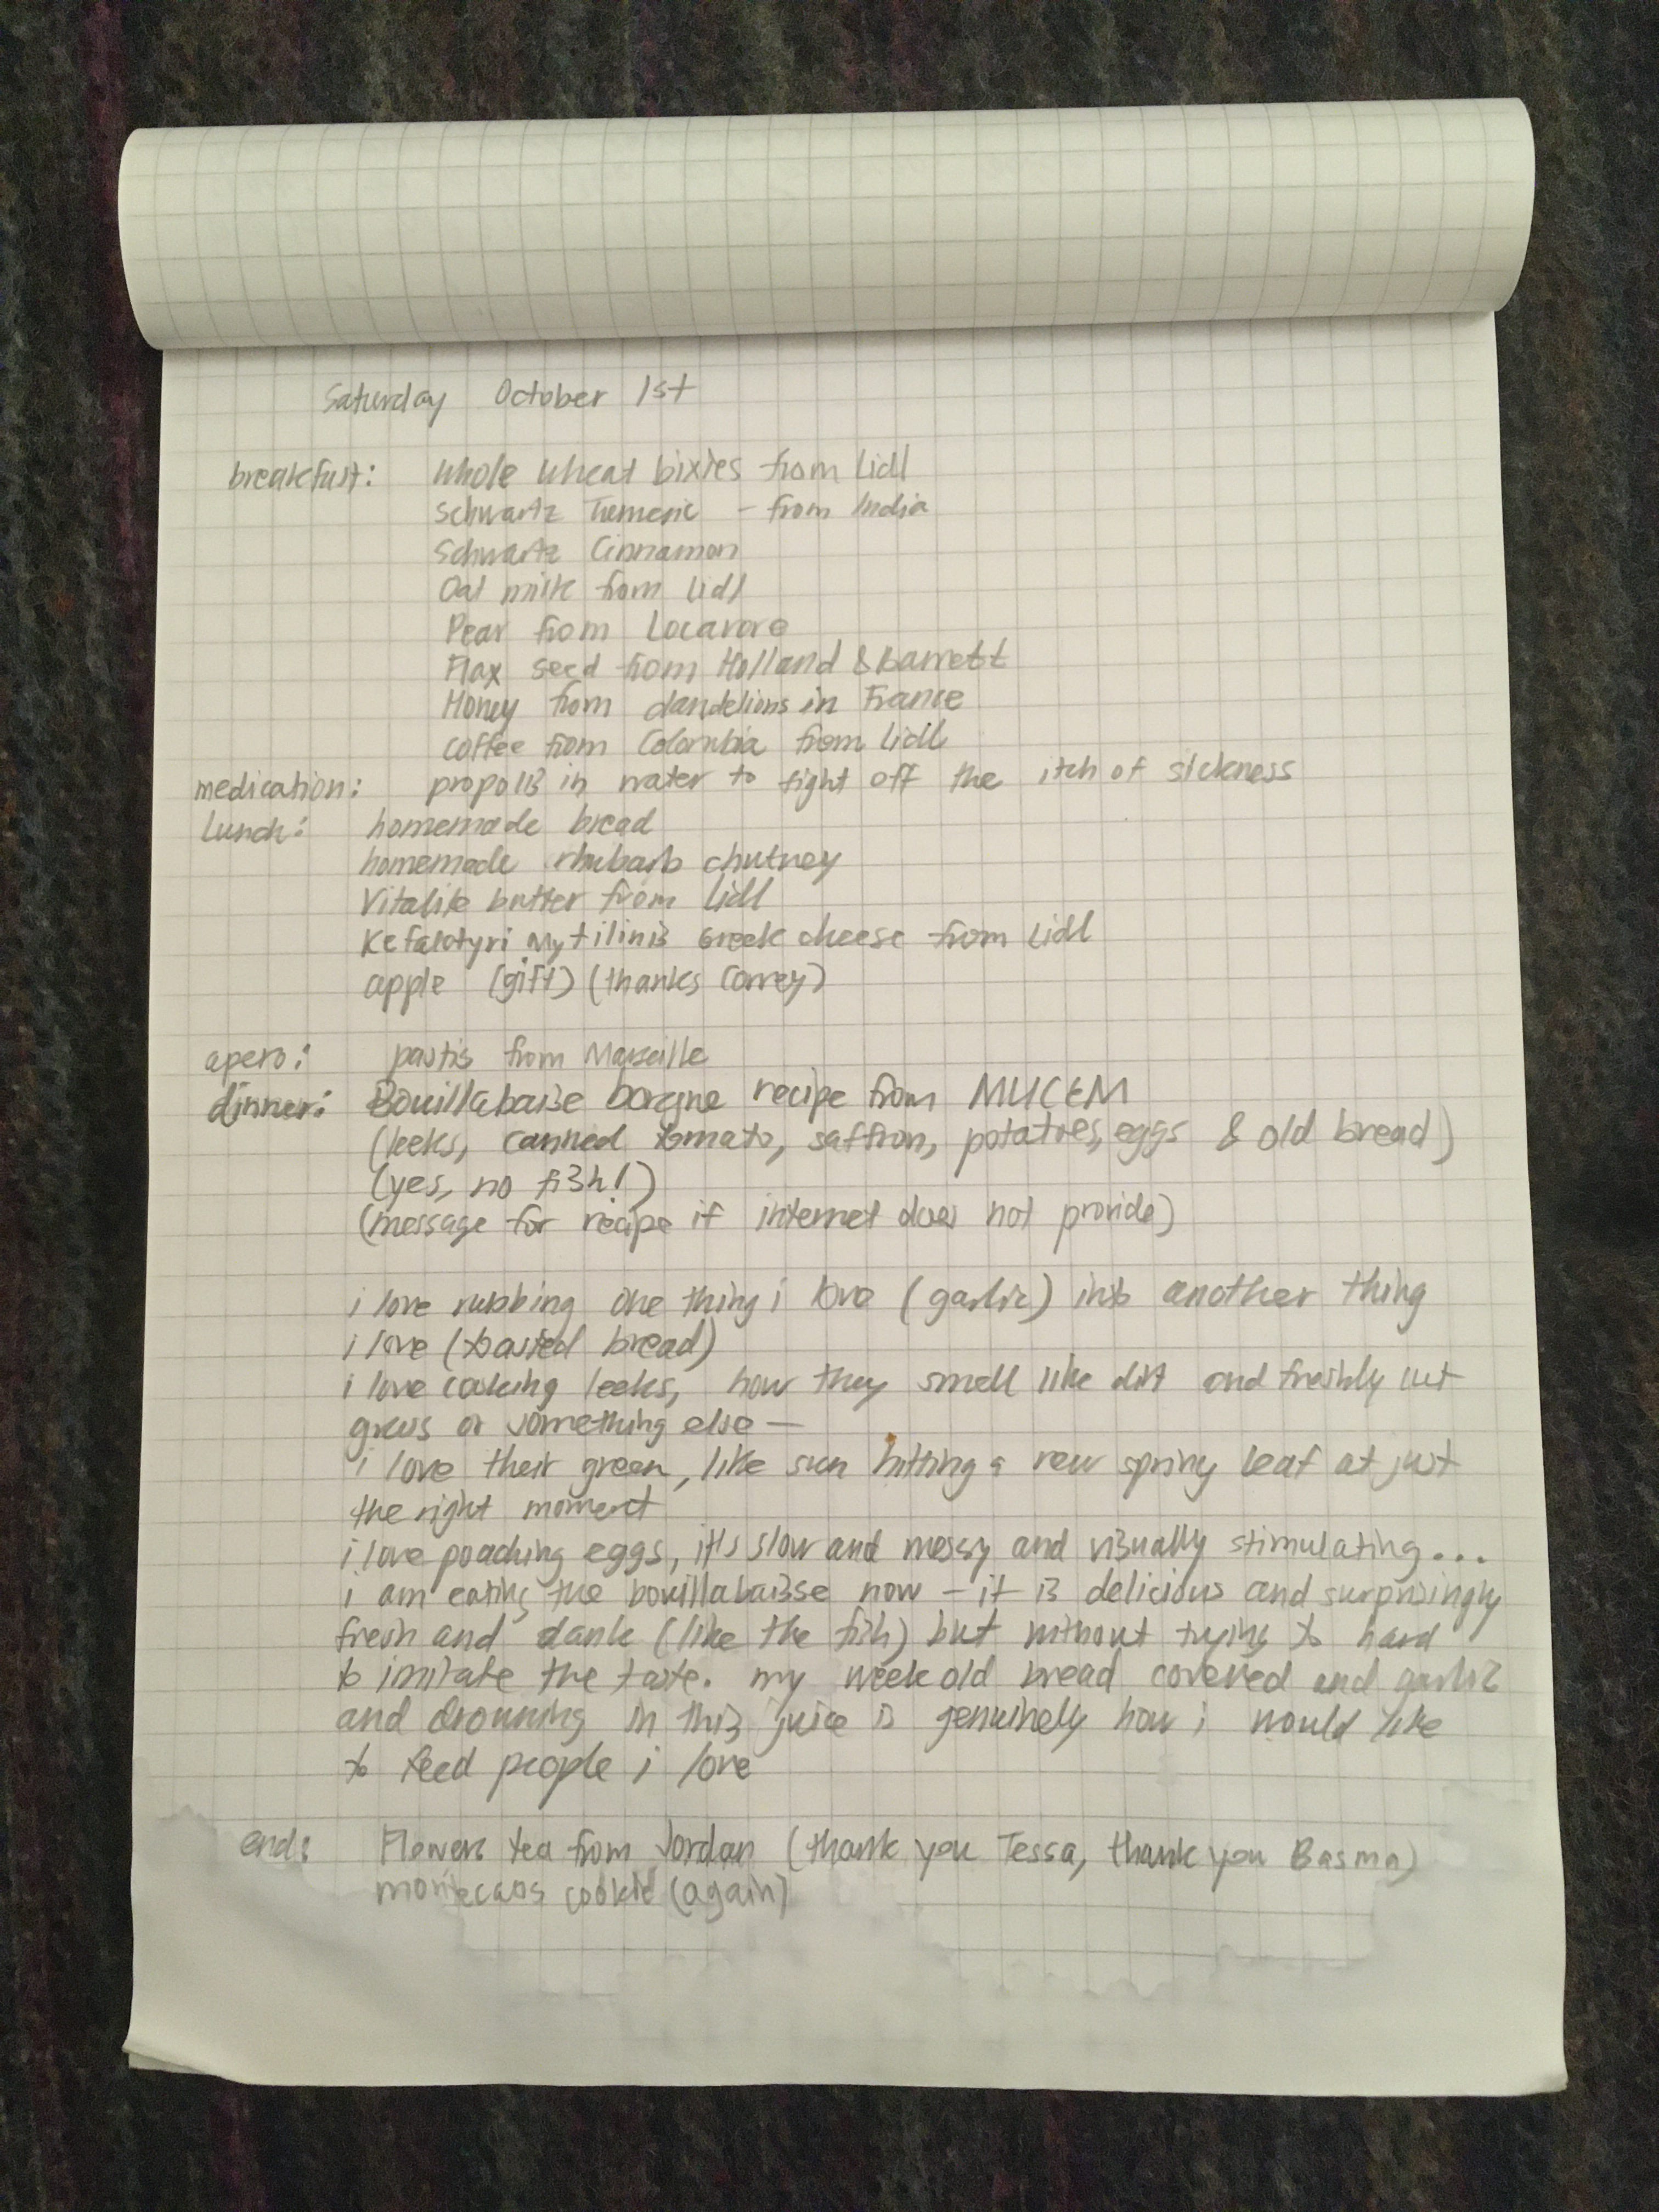 Saturday October 1st
breakfast: whole wheat bixies from Lidl
Schwartz Tumeric - from India
Schwartz Cinnamon
Oat milk from Lidl
Pear from Locavore
Flax seed from Holland & Barrett
Honey from dandelions in France
coffee from Colombia from Lidl
medication: propolis in water to fight off the itch of sickness
lunch: homemade bread
homemade rhubarb chutney
Vitalite butter from Lidl
Kefalotyri Mytilinis Greek cheese from Lidl
apple (gift) (thanks
apero: pastis from Marseille
dinner: Bouillabaise borgne recipe from MUCEM
(leeks, canned tomato, saffron, potatoes, eggs & old bread)
(yes, no fish!)
(message for recipe if internet does not provide)
i love rubbing one thing i love (garlic) into another thing
i love (toasted bread)
i love cooking leeks, how they smell like dirt and freshly cut
grass or something else —
i love their green, like sun hitting a new spring leaf at just
the right moment
i love poaching eggs, it's slow and messy and visually stimulating...
i am eating the bouillabaisse now - it is delicious and surprisingly
fresh and dank (like the fish) but without trying to hard
to imitate the taste. my week old bread covered and garlic
and drowning in this juice is genuinely how i would like
to feed people i love
end: Flowers tea from Jordan (thank you Tessa, thank you Basma)
cookie (again)